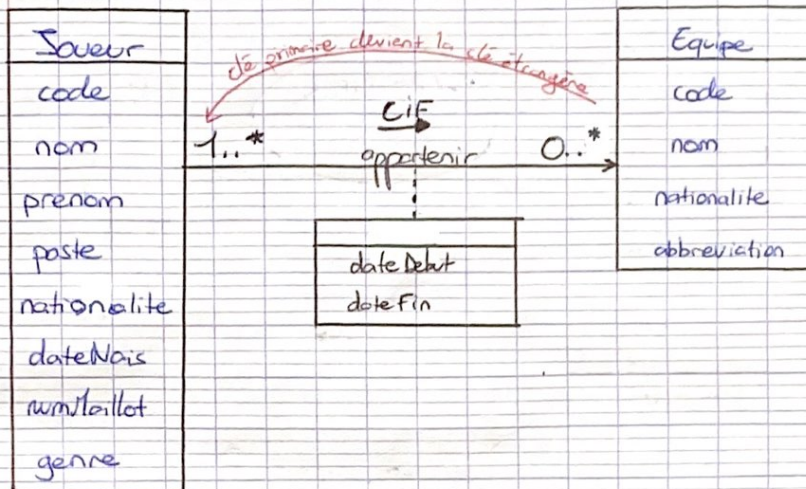 Joueur
code
nom
prenom
poste
nationalite
dateNais
numMaillot
genre
clé primaire devient la clé étrangère
CiF
1..*
appartenir
0..*
dateDebut
dateFin
Equipe
code
nom
nationalite
abbreviation